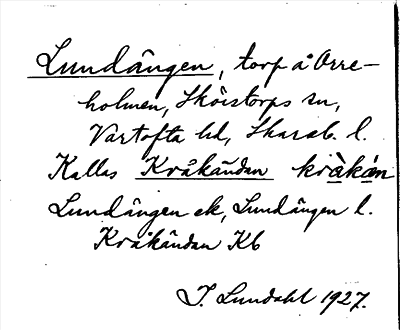 Lundängen, torp å Orre-
holmen, Skörstorps sn,
Vartofta hd, Skarab. l.
Kallas Kråkändan kråkán
Lundängen ek, Lundängen l.
Kråkändan Kb
I. Lundahl 1927.